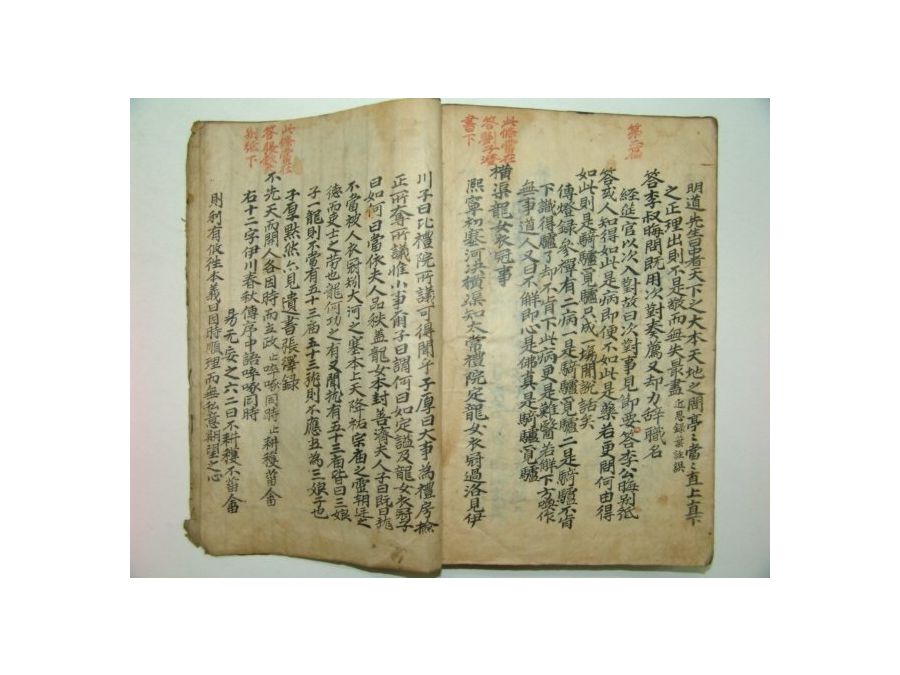 第二篇
明道先生曰中者天下之大本天地之間亭々當々直上直下
之正理出則不是敬而無失最盡 近思錄葉註誤
答李叔晦問既用次對奉薦又却力辭職名
經筵官以次入對故曰次對事見節要答李公晦別紙
答或人知得如此是病即便不如此是藥若更問何由得
如此則是騎驢覓驢只成一場閒說話矣
傳燈錄參禪有二病一是騎驢覓驢二是騎驢不肯
下識得驢了却不肯下此病更是難醫若解下方喚作
無事道人又曰不解即心是佛眞是騎驢覓驢
此條當在
答
書下
橫渠龍女衣冠事
熙寧初塞河决橫渠知太常禮院定龍女衣冠過洛見伊
川子曰比禮院所議可得聞乎子厚曰大事為禮房檢
正所奪所議惟小事爾子曰謂何曰如定謚及龍女衣冠子
曰如何曰當依夫人品秩盖龍女本封善濟夫人子曰既曰龍
不當被人衣冠矧大河之塞本上天降祐宗廟之靈朝廷之
德而吏士之勞也龍何功之有又聞龍有五十三廟皆曰三娘
子一龍則不當有五十三廟五十三龍則不應盡為三娘子也
子厚默然 見遺書張繹錄
此條當在
答
別紙下
不先天而開人各因時而立政 止啐啄同時 止耕穫菑畬
右十二字伊川春秋傳序中語啐啄同時
易无妄之六二曰不耕穫不菑畬
則利有攸往本義曰因時順理而無私意期望之心